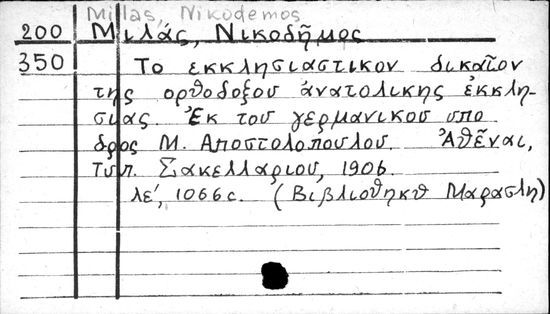 Millas, Nikodemos
200 Μιλάς, Νικοδῆμος
350 Το εκκλησιαστικον δικαῖον
της ορθοδοξου ἀνατολικης ἐκκλη-
σιας. Ἐκ του γερμανικου υπο
δρος Μ. Αποστολοπουλου. Ἀθῆναι,
Τυπ. Σακελλαριου, 1906.
λε', 1066 c. (Βιβλιοθηκη Μαρασλη)